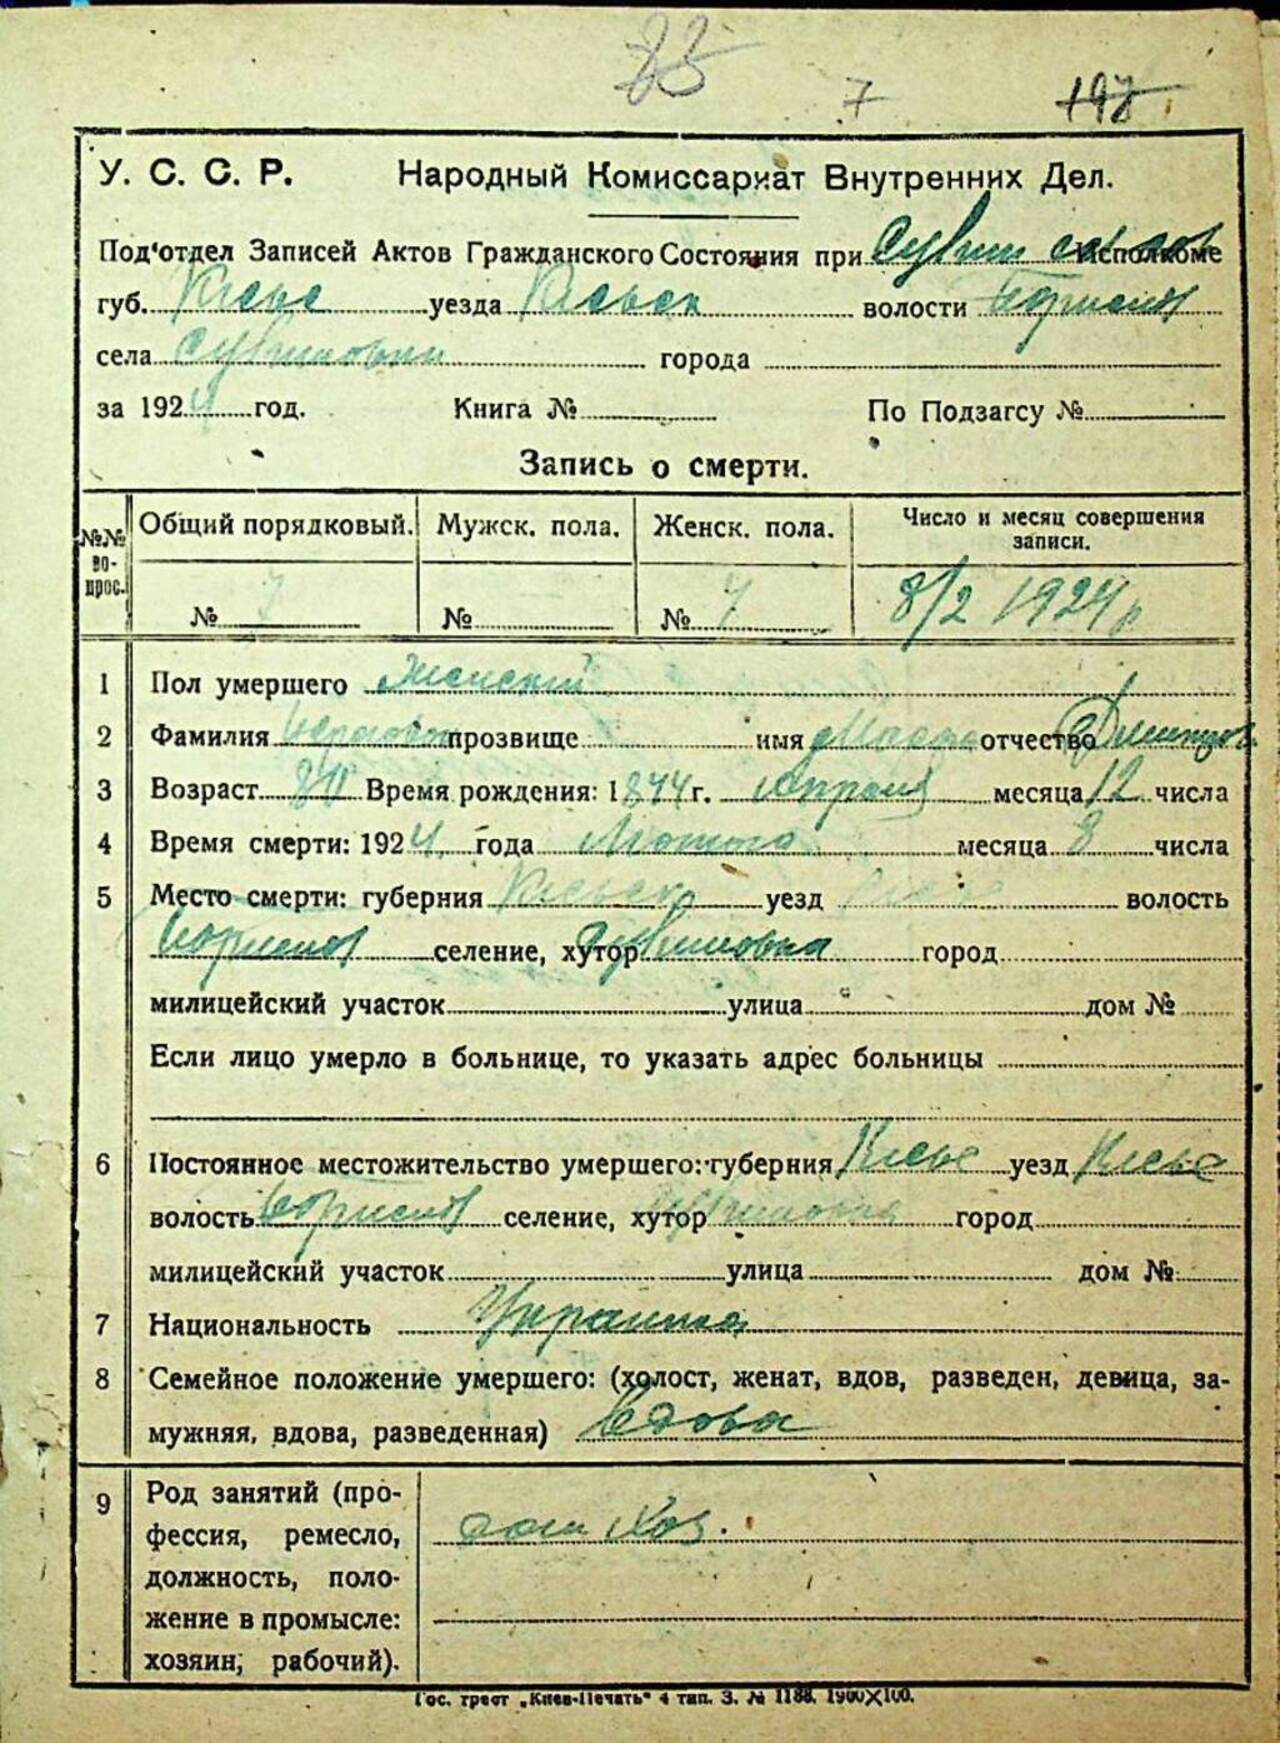 33 7 198
У. С. С. Р. Народный Комиссариат Внутренних Дел.
Под'отдел Записей Актов Гражданского Состояния при Исполкоме
губ. Киевс уезда Киевск волости
села города
за 1924 год. Книга № По Подзагсу №
Запись о смерти.
№№ во- прос. Общий порядковый. Мужск. пола. Женск. пола. Число и месяц совершения записи.
№ 7 № № 7 8/2 1924 р
1 Пол умершего Женский
2 Фамилия прозвище имя отчество
3 Возраст 80 Время рождения: 1844 г. Апреля месяца 12 числа
4 Время смерти: 1924 года Лютого месяца 8 числа
5 Место смерти: губерния Киевск уезд волость
селение, хутор город
милицейский участок улица дом №
Если лицо умерло в больнице, то указать адрес больницы
6 Постоянное местожительство умершего: губерния Киевс уезд Киевс
волость селение, хутор город
милицейский участок улица дом №
7 Национальность Украинка
8 Семейное положение умершего: (холост, женат, вдов, разведен, девица, за-
мужняя, вдова, разведенная) Вдова
9 Род занятий (про-
фессия, ремесло, дом хоз.
должность, поло-
жение в промысле:
хозяин, рабочий).
Гос. трест „Киев-Печать" 4 тип. З. № 1188. 1900×100.